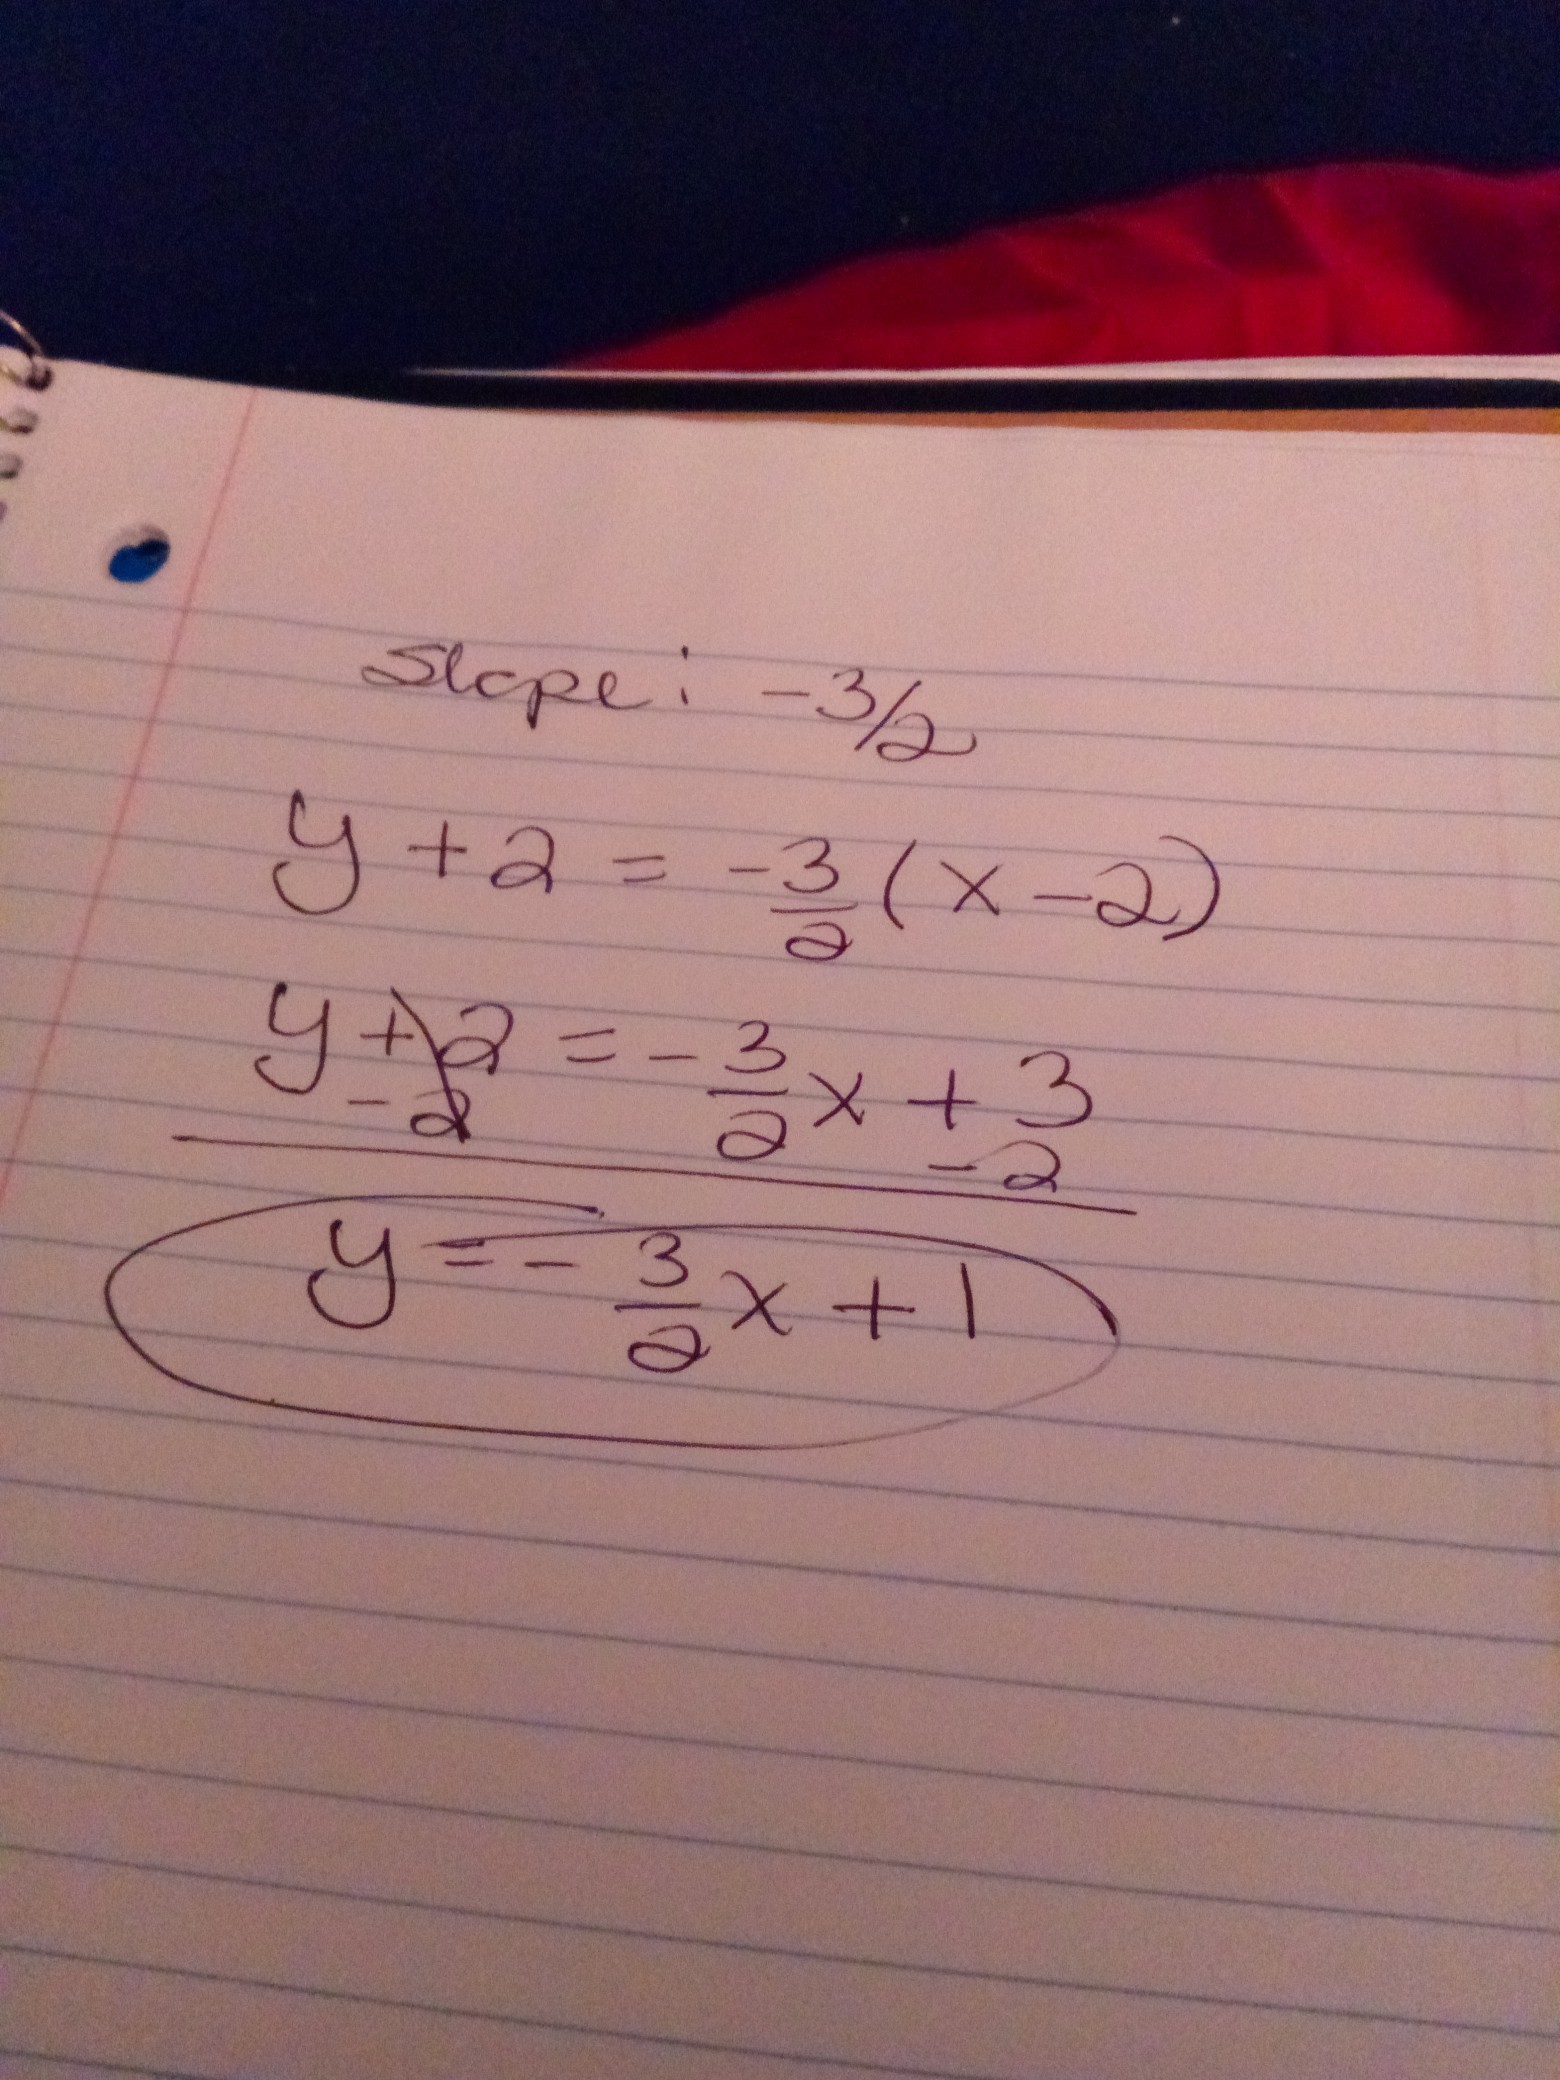 Slope: -3/2
y + 2 = -3/2 (x - 2)
y + 2 = - 3/2 x + 3
- 2 - 2
y = - 3/2 x + 1